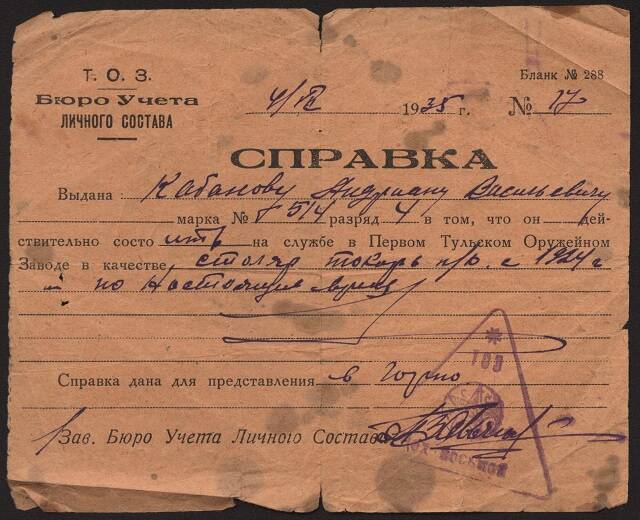 Т. О. З.
Бюро Учета
ЛИЧНОГО СОСТАВА
Бланк № 288
4/ 1935 г. № 17
СПРАВКА
Выдана Кабанову Андриану Васильевичу
марка № 8514 разряд 4 в том, что он дей-
ствительно состо ит на службе в Первом Тульском Оружейном
Заводе в качестве столяр токарь с 1924 г
по настоящее время
Справка дана для представления в Горпо
Зав. Бюро Учета Личного Состава
ТОЗ